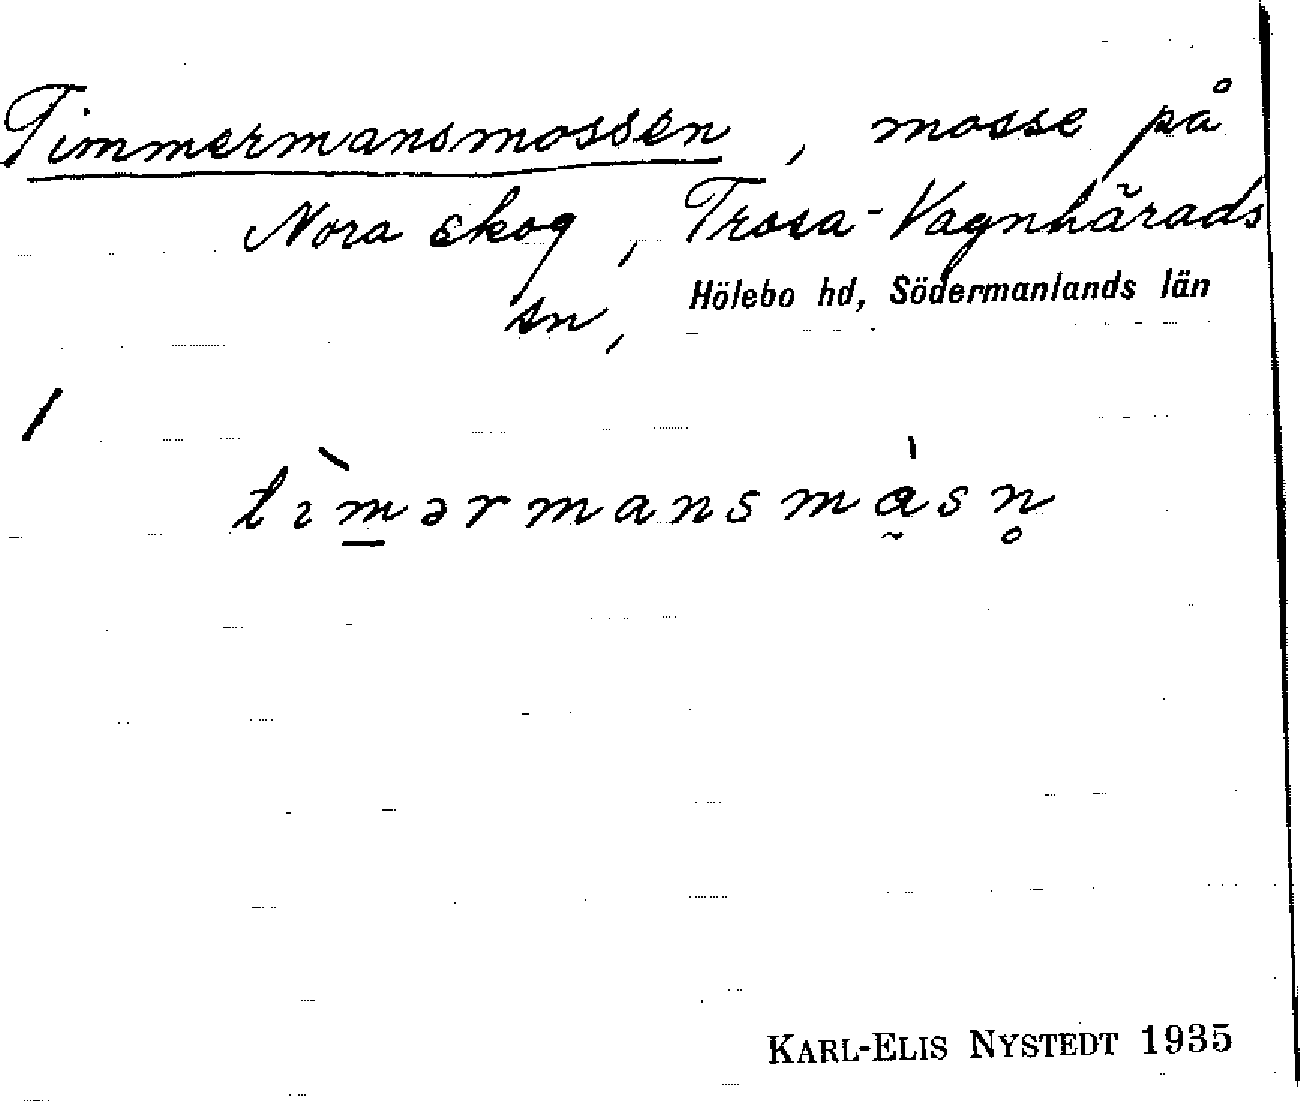 Timmermansmossen, mosse på
Nora skog, Trosa-Vagnhärads
sn, Hölebo hd, Södermanlands län
/
tìm̲ərmansmà̰sn̥
KARL-ELIS NYSTEDT 1935